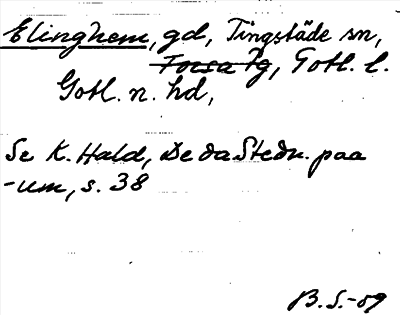 Elinghem, gd, Tingstäde sn,
Forsa tg, Gotl. l.
Gotl. n. hd,
Se K. Hald, De da Stedn. paa
-um, s. 38
B. S.-59